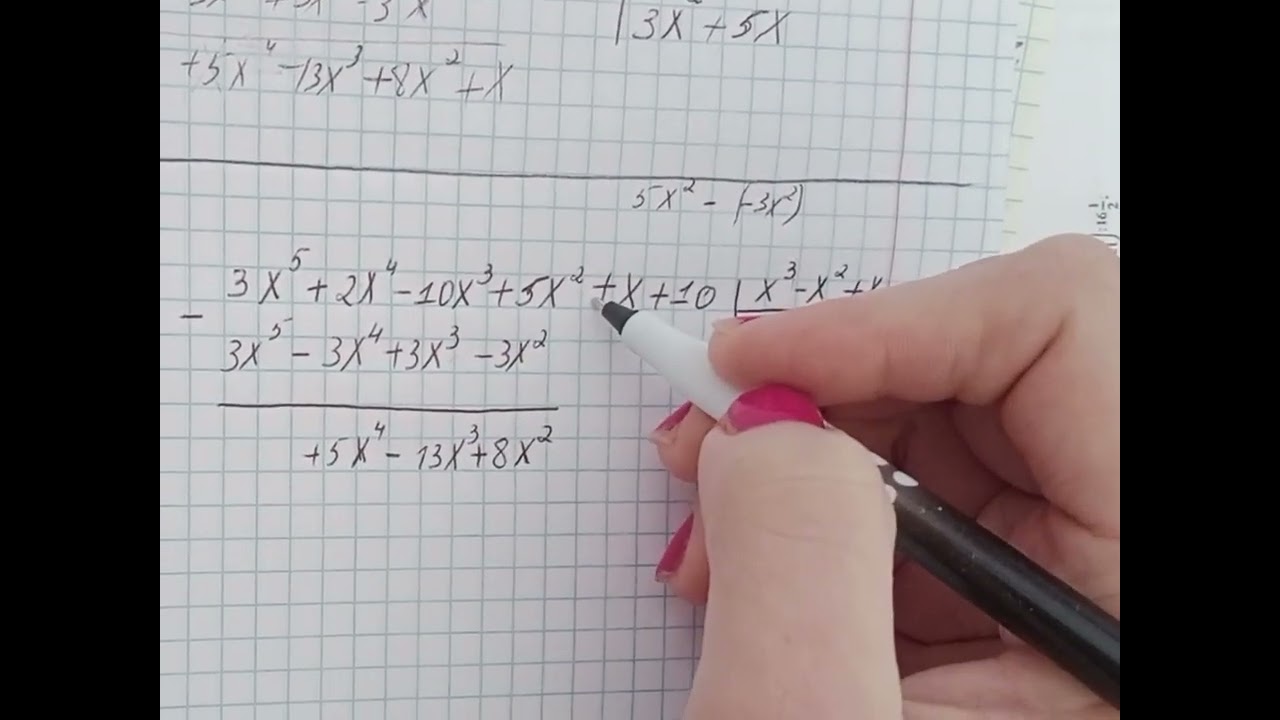 3x² + 5x
+5x⁴ - 13x³ + 8x² + x
5x² - (-3x²)
- 3x⁵ + 2x⁴ - 10x³ + 5x² + x + 10 | x³ - x² + x
3x⁵ - 3x⁴ + 3x³ - 3x²
+5x⁴ - 13x³ + 8x²